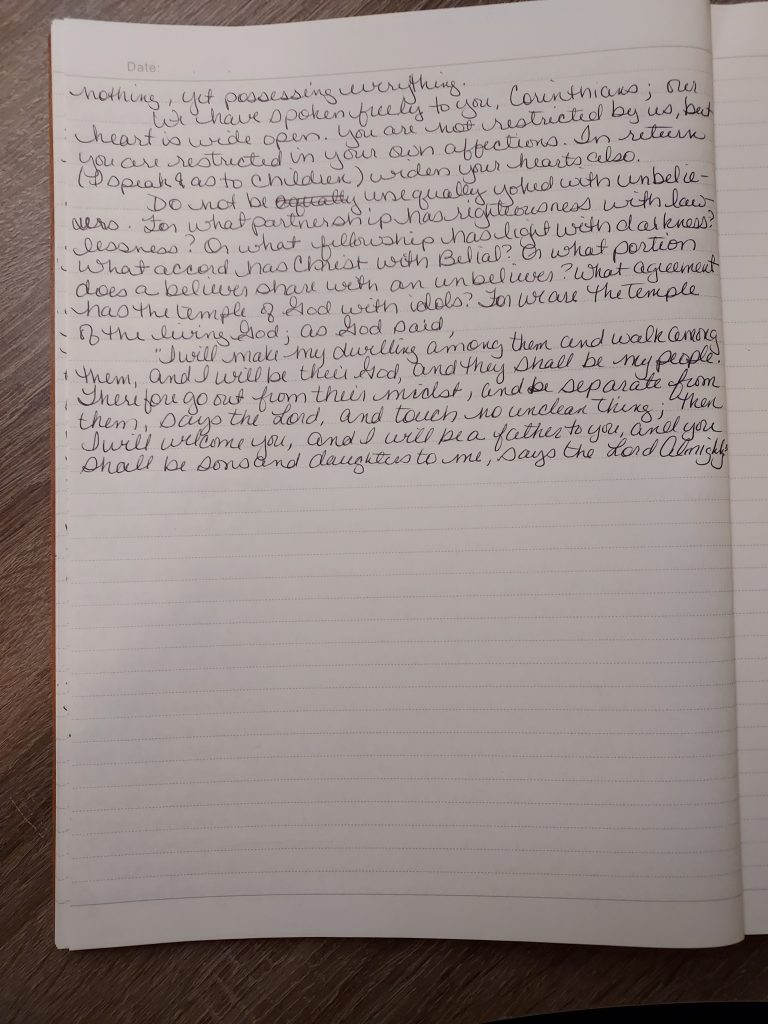 Date:
nothing, yet possessing everything.
We have spoken freely to you, Corinthians; our
heart is wide open. You are not restricted by us, but
you are restricted in your own affections. In return
(I speak as to children) widen your hearts also.
Do not be equally unequally yoked with unbelie-
vers. For what partnership has righteousness with law-
lessness? Or what fellowship has light with darkness?
What accord has Christ with Belial? Or what portion
does a believer share with an unbeliever? What agreement
has the temple of God with idols? For we are the temple
of the living God; as God said,
"I will make my dwelling among them and walk among
them, and I will be their God, and they shall be my people.
Therefore go out from their midst, and be separate from
them, says the Lord, and touch no unclean thing; then
I will welcome you, and I will be a father to you, and you
shall be sons and daughters to me, says the Lord Almighty